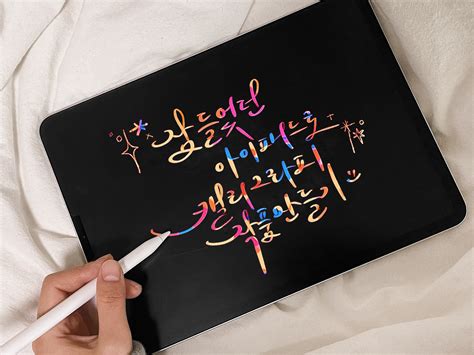 잠들었던
아이패드로
캘리그라피
작품만들기